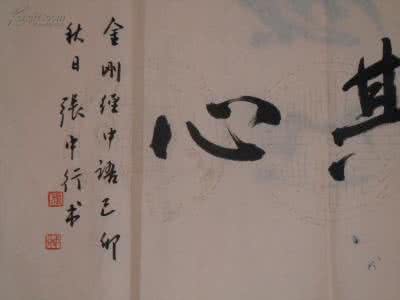 其心
金剛經中語己卯
秋日張中行